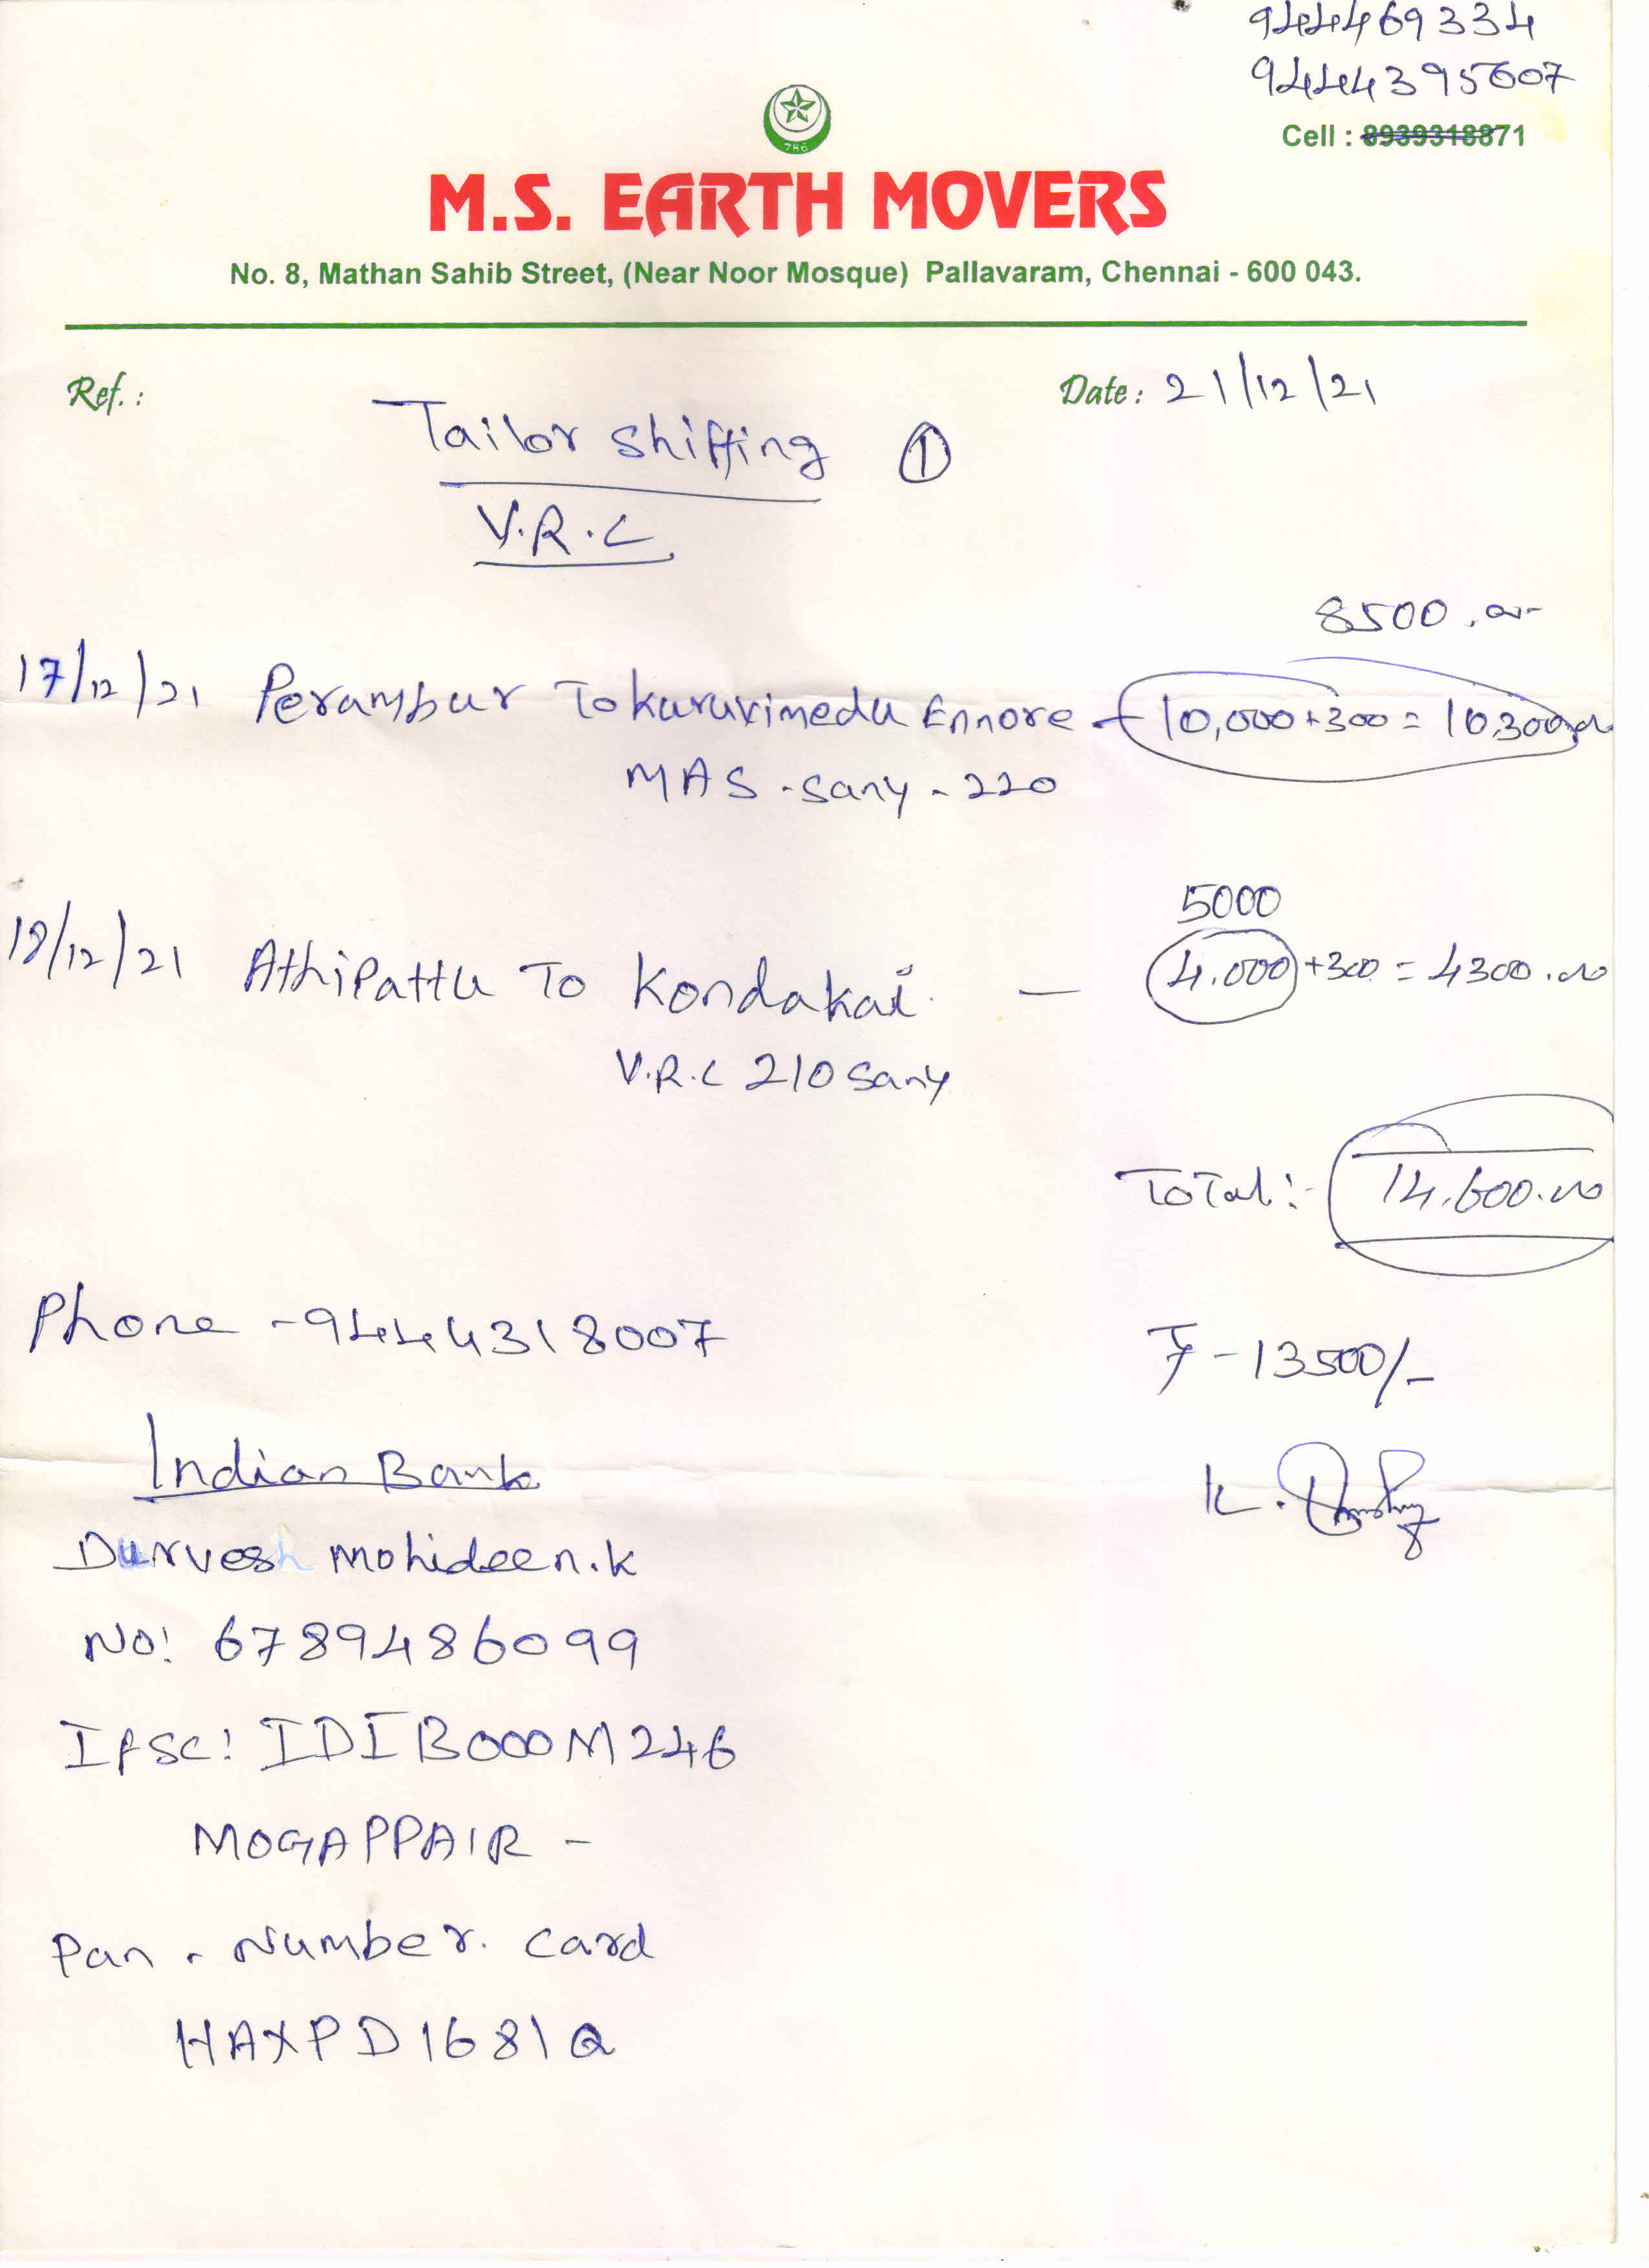 944469334
9444395607
786
Cell : 8939318871
M.S. EARTH MOVERS
No. 8, Mathan Sahib Street, (Near Noor Mosque) Pallavaram, Chennai - 600 043.
Ref. :
Date : 21/12/21
Tailor Shifting ①
V.R.C.
8500.00
17/12/21 Perambur To Kuruvimedu Ennore - 10,000+300 = 10,300.00
MAS - Sany - 220
5000
18/12/21 Athipattu To Kondakai - 4,000+300 = 4300.00
V.R.C 210 Sany
Total :- 14,600.00
Phone - 9444318007
F - 13500/-
Indian Bank
K.
Durvesh Mohideen.k
No: 6789486099
Ifsc: IDIB000M246
MOGAPPAIR -
Pan - Number. Card
HAXPD1681Q